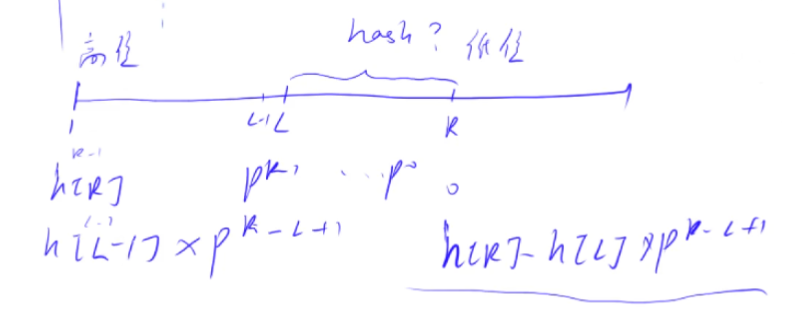 高位 hash? 低位
1 L-1 L R
R-1
h[R] p^R-1 ... p^0 0
h[L-1] × p^R-L+1 h[R]-h[L]×p^R-L+1